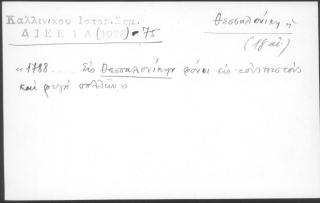 Καλλινίκου Ιστορ. Σημ.
ΔΙΚΕΙΑ (1928) - 75
Θεσσαλονίκη
(18 αἰ.)
«1788 ..... Εἰς Θεσσαλονίκην φόνοι εἰς τοὺς πιστοὺς
καὶ φυγὴ πολλῶν»